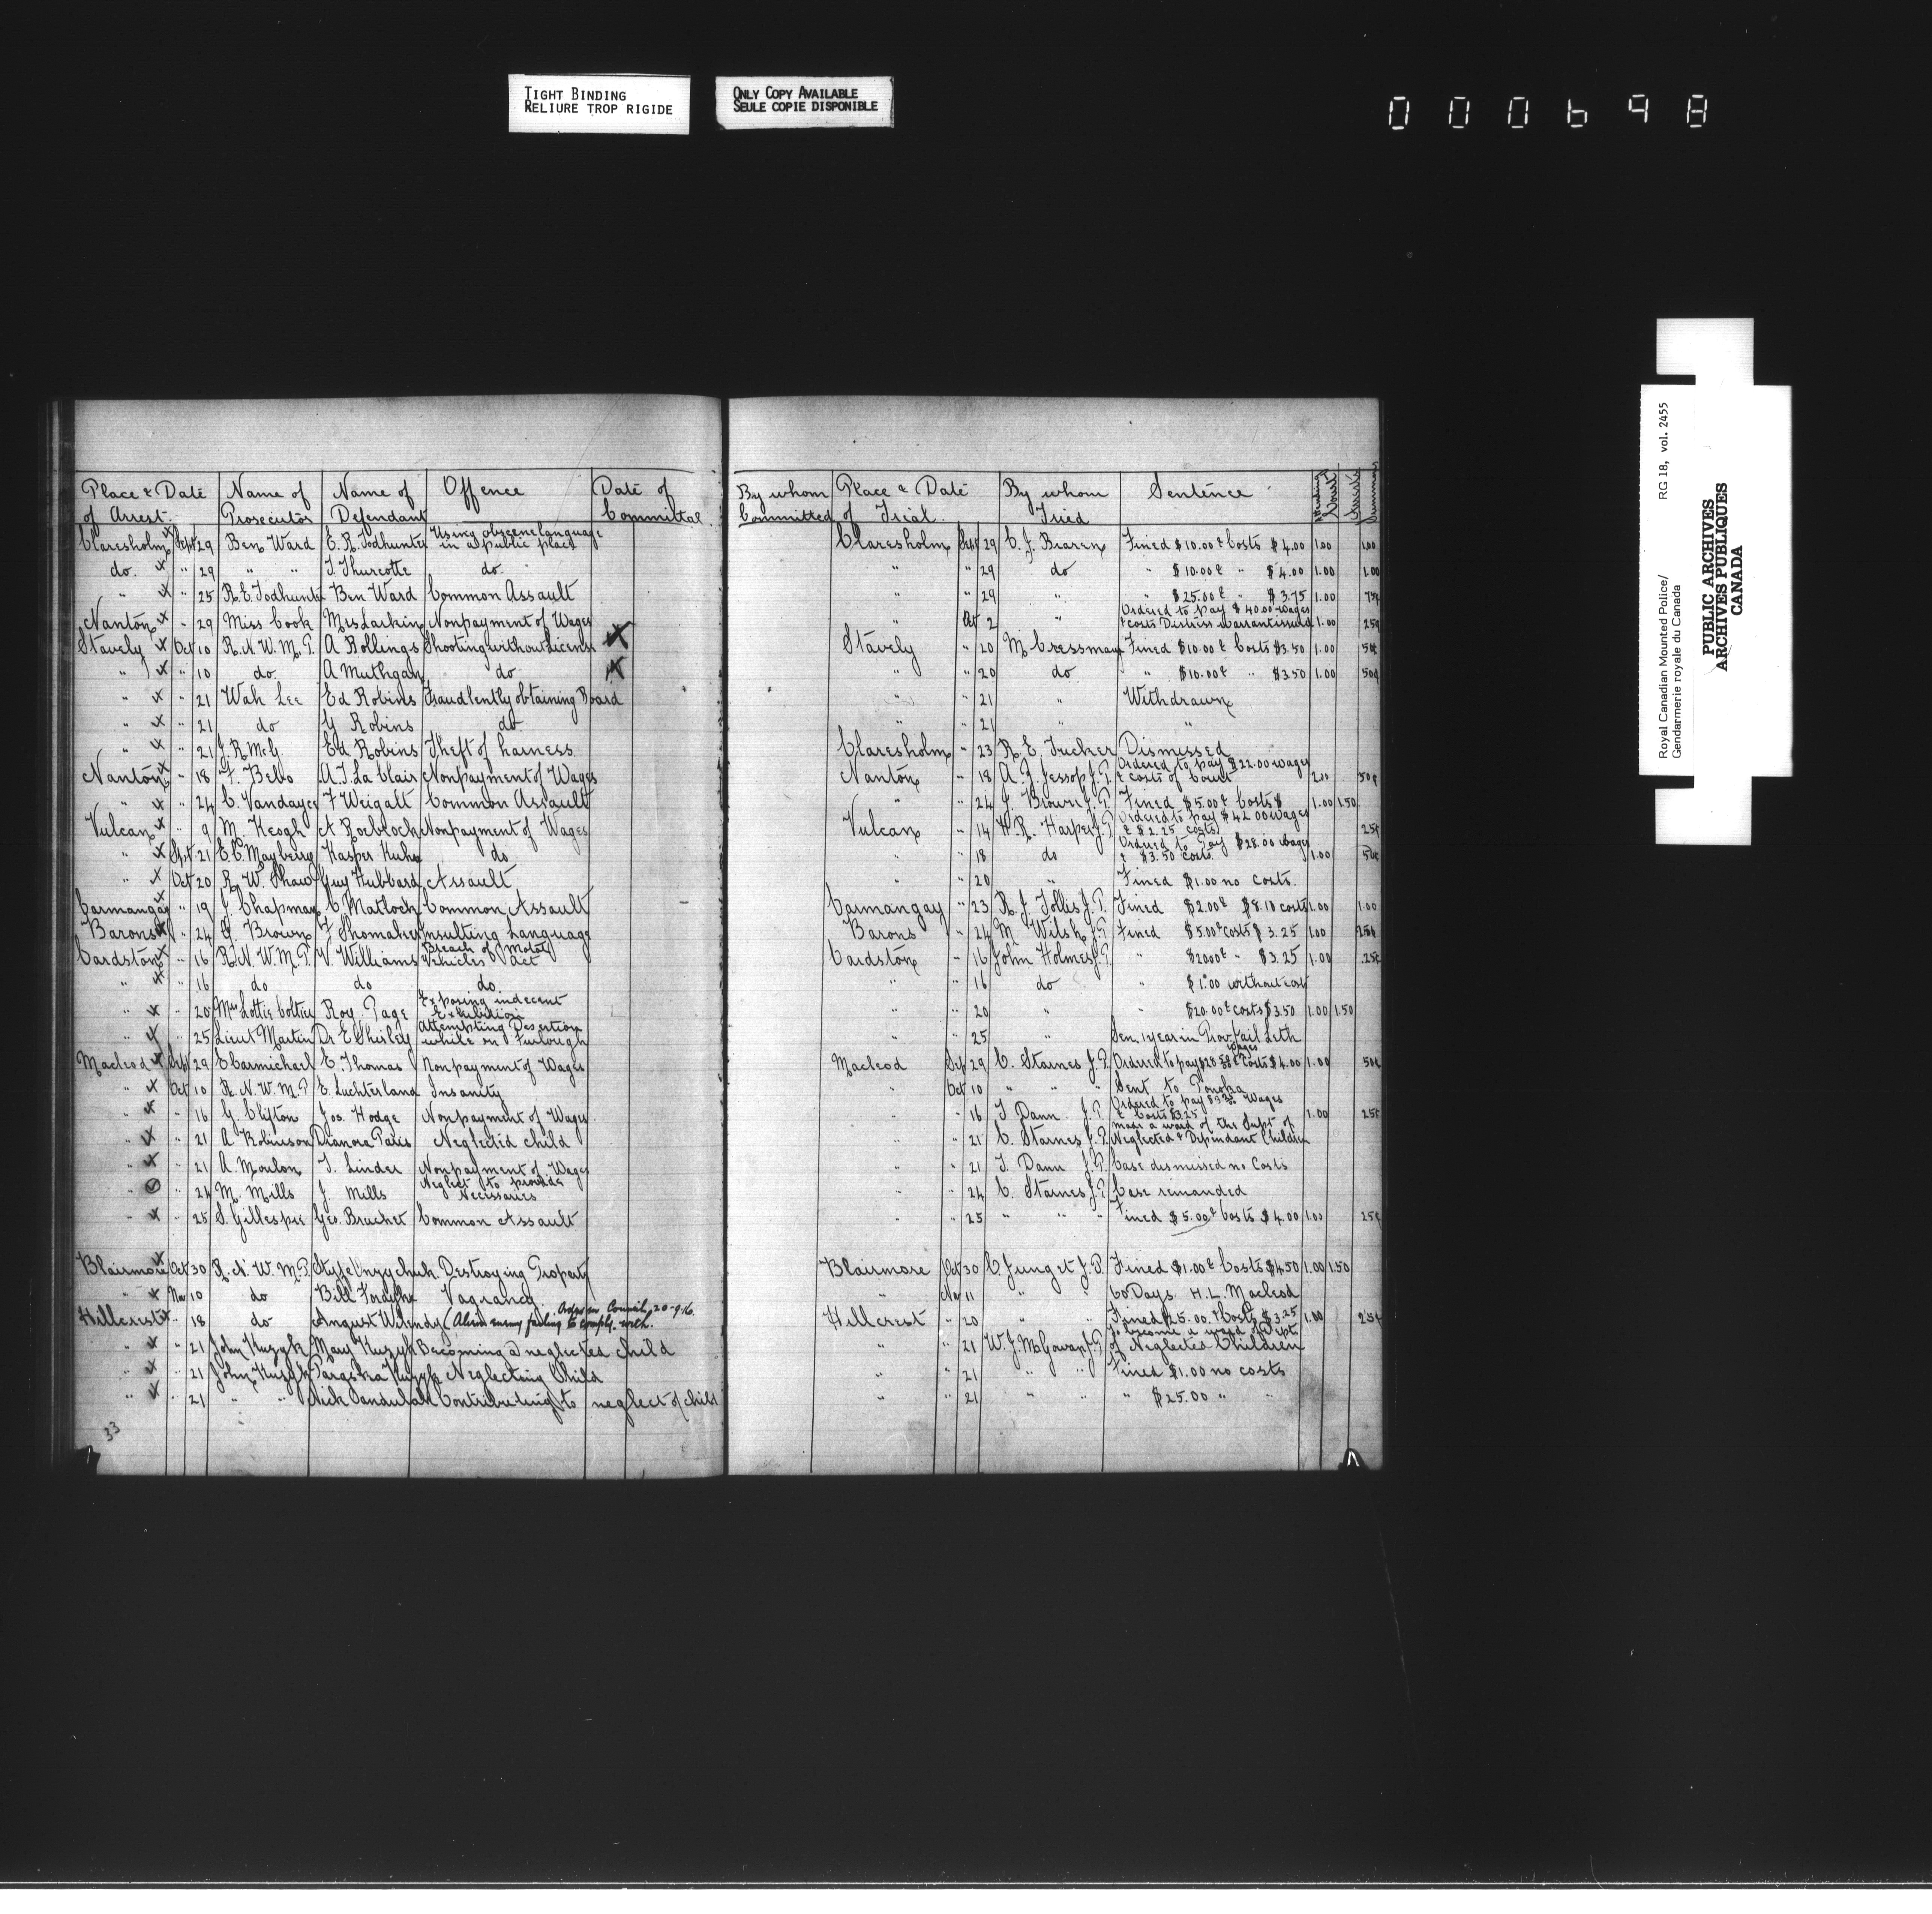 TIGHT BINDING
RELIURE TROP RIGIDE
ONLY COPY AVAILABLE
SEULE COPIE DISPONIBLE
000698
Royal Canadian Mounted Police/ RG 18, vol. 2455
Gendarmerie royale du Canada
PUBLIC ARCHIVES
ARCHIVES PUBLIQUES
CANADA
Place & Date of Arrest. Name of Prosecutor Name of Defendant Offence Date of Committal By whom Committed Place & Date of Trial. By whom Tried Sentence
Claresholm Sept 29 Ben Ward E. R. Todhunter Using obscene language in a public place Claresholm Sept 29 C. J. Fined $10.00 & Costs $4.00 1.00 1.00
do. " 29 " " T. Thurcotte do. " " 29 do " $10.00 & " $4.00 1.00 1.00
" " 25 R. E. Todhunter Ben Ward Common Assault " " 29 " " $25.00 & " $3.75 1.00 75¢
Nanton " 29 Miss Cook Mrs Larkin Nonpayment of Wages " Oct 2 " Ordered to pay $40.00 wages & costs Distress warrant issued 1.00 25¢
Stavely Oct 10 R. N. W. M. P. A Rollings Shooting without License X Stavely " 20 M. Cressman Fined $10.00 & Costs $3.50 1.00 50¢
" " 10 do. A Muthgan do X " " 20 do " $10.00 & " $3.50 1.00 50¢
" " 21 Wah Lee Ed Robins Fraudlently obtaining Board " " 21 " Withdrawn
" " 21 do G Robins do. " " 21 " "
" " 21 J. R. McG. Ed Robins Theft of harness Claresholm " 23 R. E. Tucker Dismissed
Nanton " 18 F. Bebo A. J. La Clair Nonpayment of Wages Nanton " 18 A. J. Jessop J. P. Ordered to pay $22.00 wages & costs of Court 2.00 50¢
" " 24 C. Vandayce F Weigalt Common Assault " " 24 J. Brown J. P. Fined $5.00 & Costs $ 1.00 1.50
Vulcan " 9 M. Keogh A Roeblock Nonpayment of Wages Vulcan " 14 H. R. Harper J. P. Ordered to pay $42.00 wages & $2.25 costs 25¢
" Sept 21 E. C. Mayberry Kasper Kuhn do " " 18 do Ordered to Pay $28.00 wages & $3.50 costs. 1.00 50¢
" Oct 20 R. W. Shaw Guy Hubbard Assault " " 20 " Fined $1.00 no costs.
Carmangay " 19 J. Chapman C Matlock Common Assault Carmangay " 23 R. J. Tollis J. P. Fined $2.00 & $8.10 costs 1.00 1.00
Barons " 24 G. Brown F Shomaker Insulting Language Barons " 24 M Wilsh J. P. Fined $5.00 & costs $3.25 1.00 25¢
Cardston " 16 R. N. W. M. P. V. Williams Breach of Motor Vehicles Act Cardston " 16 John Holmes J. P. " $20.00 & " $3.25 1.00 25¢
" " 16 do do do. " " 16 do " $1.00 without cost
" " 20 Mrs Lottie Coltier Roy. Page Exposing indecent Exhibition " " 20 " " $20.00 & costs $3.50 1.00 1.50
" " 25 Lieut Martin Dr E Shirley Attempting Desertion while on Furlough " " 25 " Sen. 1 year in Prov. Jail Leth
Macleod Sept 29 E Carmichael E. Thomas Nonpayment of Wages Macleod Sep 29 C. Starnes J. P. Ordered to pay $28.88 wages & Costs $4.00 1.00 50¢
" Oct 10 R. N. W. M. P. E. Luchterland Insanity Oct 10 " " " Sent to Ponoka
" " 16 G. Clifton Jos. Hodge Nonpayment of Wages " " 16 T Dann J. P. Ordered to pay Wages & Costs $3.25 1.00 25¢
" " 21 A Robinson Dianora Paris Neglected Child " " 21 C. Starnes J. P. made a ward of the Supt of Neglected & Dependant Children
" " 21 A. Moulon T. Linder Nonpayment of Wages " " 21 T. Dann J. P. Case dismissed no Costs
" " 24 M. Mills J. Mills Neglect to provide Necessaries " " 24 C. Starnes J. P. Case remanded
" " 25 S. Gillespie Geo. Brachet Common Assault " " 25 " " " Fined $5.00 & Costs $4.00 1.00 25¢
Blairmore Oct 30 R. N. W. M. P. Destroying Property Blairmore Oct 30 C. Junget J. P. Fined $1.00 & Costs $4.50 1.00 1.50
" Nov 10 do Bill Forsythe Vagrancy " Nov 11 " " 60 Days H. L. Macleod
Hillcrest " 18 do August Wilendy (Alien enemy failing to comply with Order in Council 20-9-16. Hillcrest " 20 " " Fined $25.00 & Costs $3.25 1.00 25¢
" " 21 John Kuzyk Mary Kuzyk Becoming a neglected child " " 21 W. J. McGowan J. P. To become a ward of Supt. of Neglected Children
" " 21 John Kuzyk Paraska Kuzyk Neglecting Child " " 21 " " Fined $1.00 no costs
" " 21 " " Nick Sandulak Contributing to neglect of child " " 21 " " " $25.00 " "
33